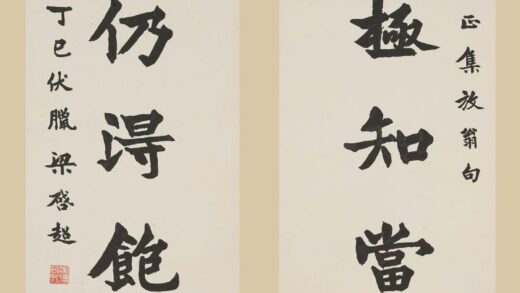 正集放翁句
極知當
仍淂飽
丁巳伏臘梁啓超